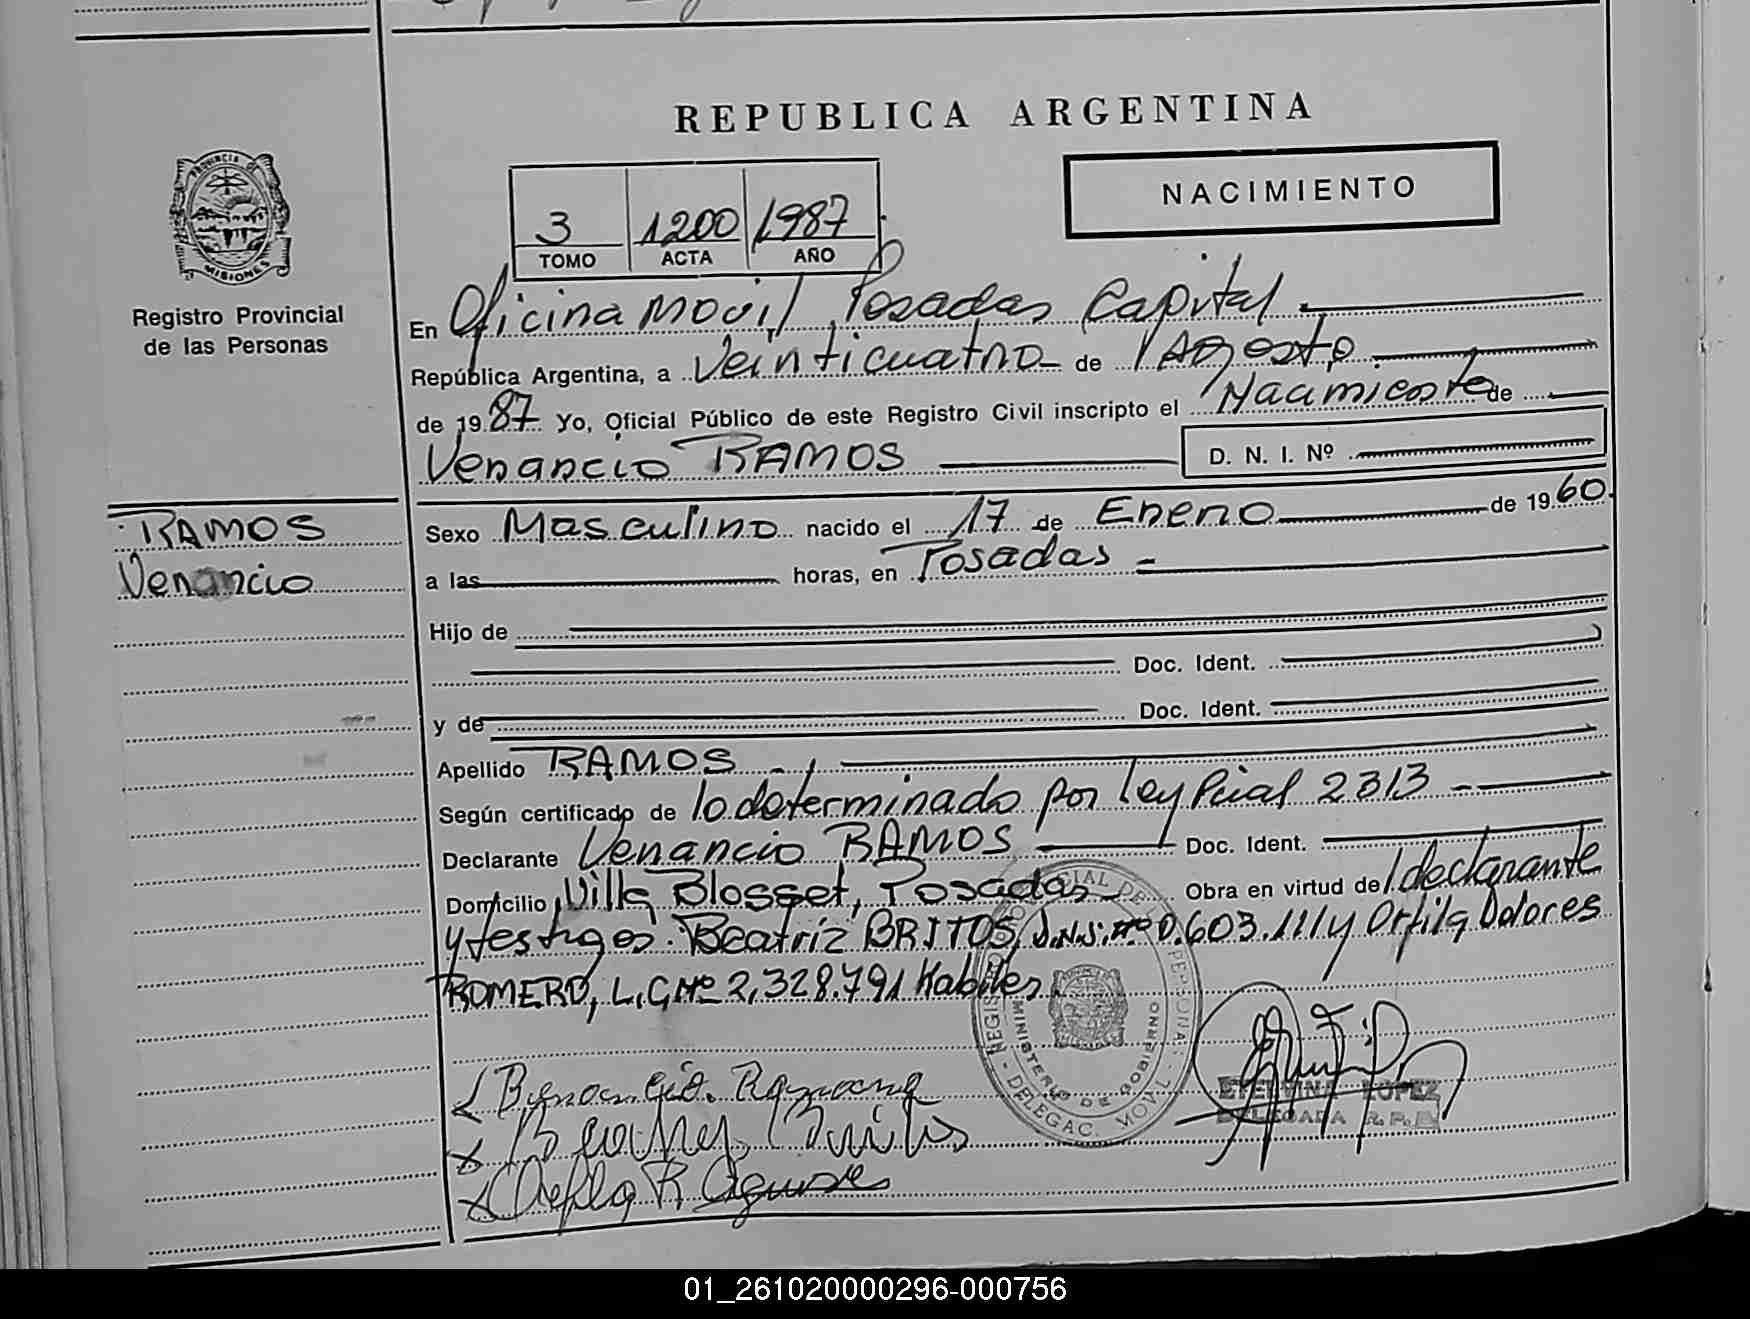 REPUBLICA ARGENTINA
NACIMIENTO
3 1200 1987
TOMO ACTA AÑO
PROVINCIA DE
MISIONES
Registro Provincial
de las Personas
En Oficina Movil Posadas Capital
República Argentina, a Veinticuatro de Agosto
de 1987 Yo, Oficial Público de este Registro Civil inscripto el Nacimiento de
Venancio RAMOS D. N. I. Nº
RAMOS
Venancio
Sexo Masculino nacido el 17 de Enero de 1960
a las horas, en Posadas
Hijo de
Doc. Ident.
y de Doc. Ident.
Apellido RAMOS
Según certificado de lo determinado por Ley Pcial 2313
Declarante Venancio RAMOS Doc. Ident.
Domicilio Villa Blosset, Posadas Obra en virtud de declarante
y testigos: Beatriz BRITOS, Nº 0.603.111 y Orfila Dolores
ROMERO, L.C. Nº 2,328.791 Habiles
MINISTERIO DE GOBIERNO
DELEGAC. MOVIL
LOPEZ
DELEGADA
01_261020000296-000756